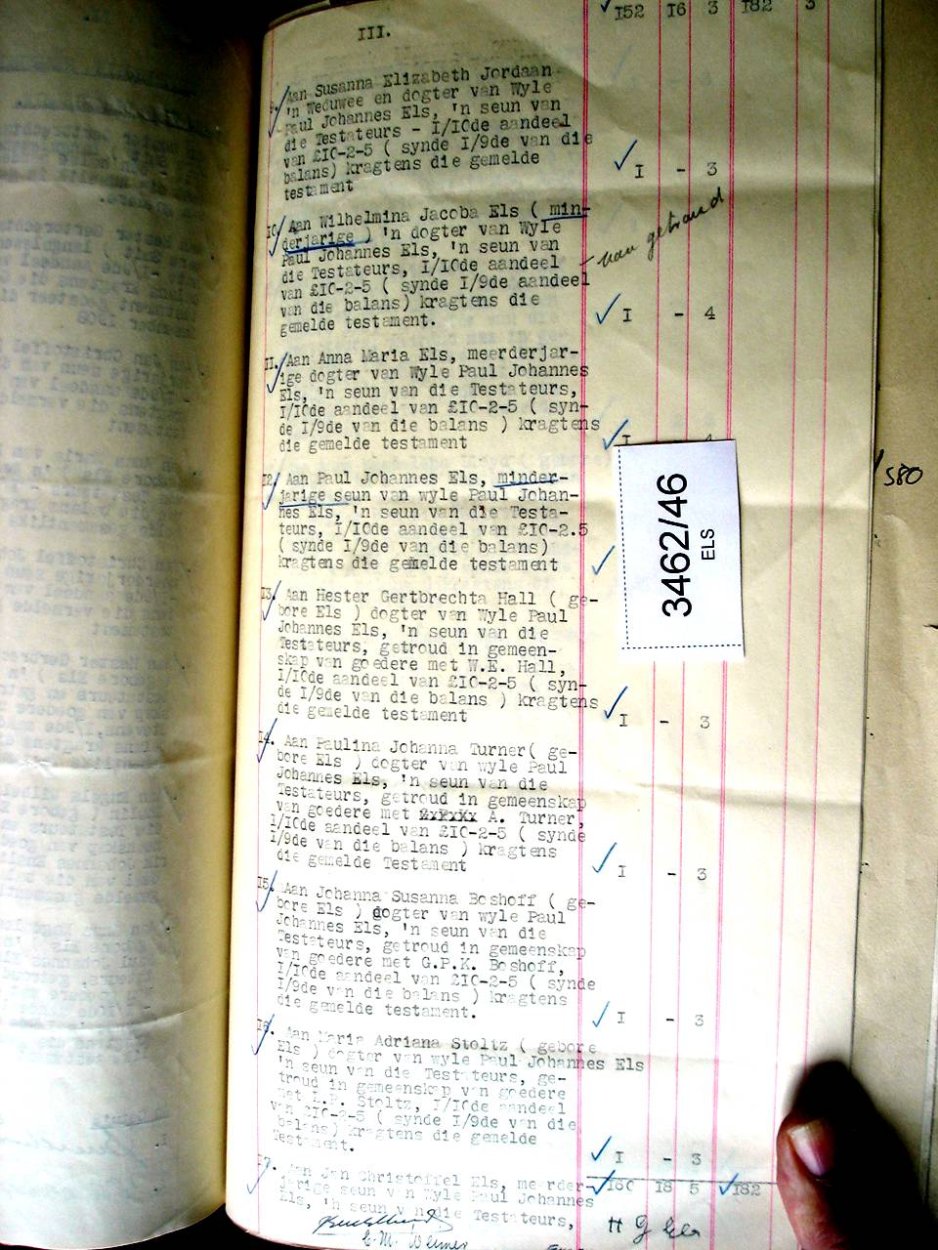 III.
152 16 3 182 3
9. Aan Susanna Elizabeth Jordaan
'n Weduwee en dogter van Wyle
Paul Johannes Els, 'n seun van
die Testateurs - I/IOde aandeel
van £IO-2-5 ( synde I/9de van die
balans) kragtens die gemelde
testament
I - 3
IO. Aan Wilhelmina Jacoba Els ( min-
derjarige ) 'n dogter van Wyle
Paul Johannes Els, 'n seun van
die Testateurs, I/IOde aandeel
van £IO-2-5 ( synde I/9de aandeel
van die balans) kragtens die
gemelde testament.
I - 4
II. Aan Anna Maria Els, meerderjar-
ige dogter van Wyle Paul Johannes
Els, 'n seun van die Testateurs,
I/IOde aandeel van £IO-2-5 ( syn-
de I/9de van die balans ) kragtens
die gemelde testament
I
I2. Aan Paul Johannes Els, minder-
jarige seun van wyle Paul Johan-
nes Els, 'n seun van die Testa-
teurs, I/IOde aandeel van £IO-2.5
( synde I/9de van die balans)
kragtens die gemelde testament
3462/46
ELS
580
I3. Aan Hester Gertbrechta Hall ( ge-
bore Els ) dogter van Wyle Paul
Johannes Els, 'n seun van die
Testateurs, getroud in gemeen-
skap van goedere met W.E. Hall,
I/IOde aandeel van £IO-2-5 ( syn-
de I/9de van die balans ) kragtens
die gemelde testament
I - 3
I4. Aan Paulina Johanna Turner( ge-
bore Els ) dogter van wyle Paul
Johannes Els, 'n seun van die
Testateurs, getroud in gemeenskap
van goedere met A. Turner,
I/IOde aandeel van £IO-2-5 ( synde
I/9de van die balans ) kragtens
die gemelde Testament
I - 3
I5. Aan Johanna Susanna Boshoff ( ge-
bore Els ) dogter van wyle Paul
Johannes Els, 'n seun van die
Testateurs, getroud in gemeenskap
van goedere met G.P.K. Boshoff,
I/IOde aandeel van £IO-2-5 ( synde
I/9de van die balans ) kragtens
die gemelde testament.
I - 3
I6. Aan Maria Adriana Stoltz ( gebore
Els ) dogter van wyle Paul Johannes Els
'n seun van die Testateurs, ge-
troud in gemeenskap van goedere
met Stoltz, I/IOde aandeel
van £IO-2-5 ( synde I/9de van die
balans) kragtens die gemelde
Testament.
I - 3
I7. Aan Jan Christoffel Els, meerder-
jarige seun van Wyle Paul Johannes
Els, 'n seun van die Testateurs,
I60 I8 5 I82
H G Els